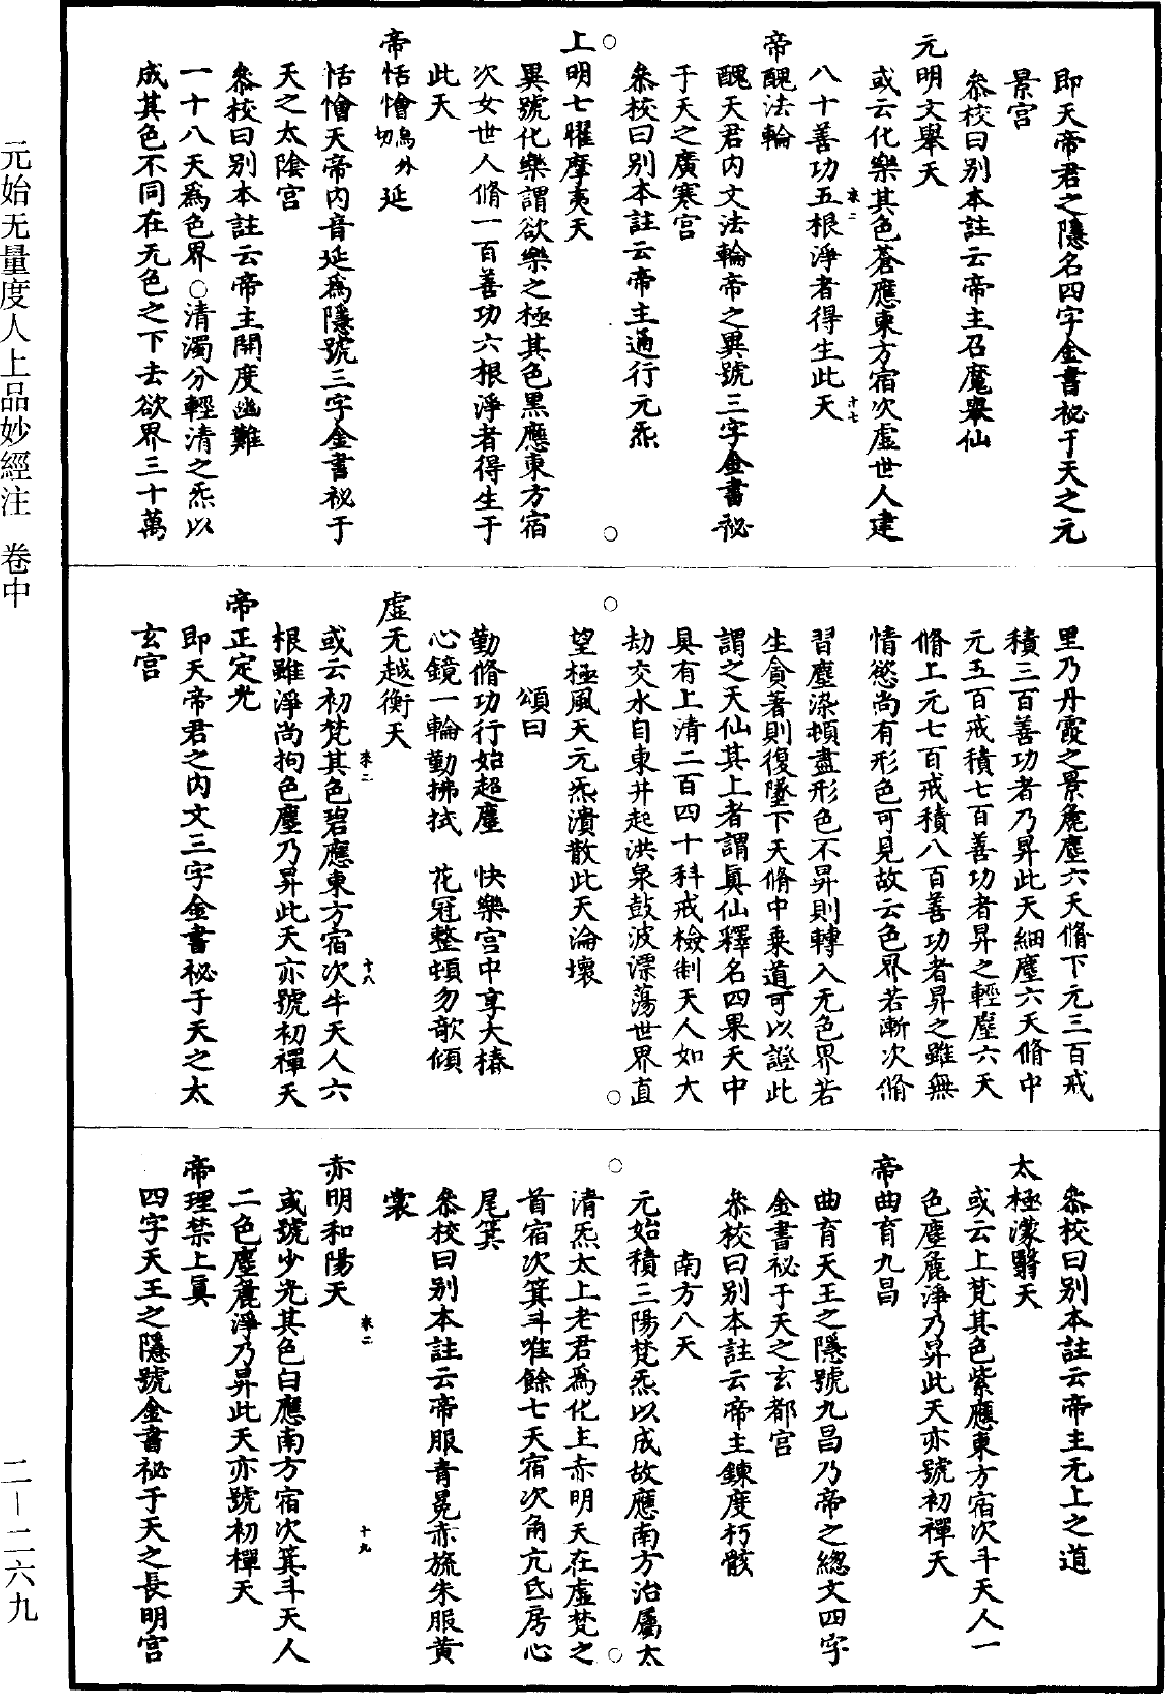 即天帝君之隱名四字金書祕于天之元
景宮
叅校曰别本註云帝主召魔舉仙
元明文舉天
或云化樂其色蒼應東方宿次虛世人建
來二 十七
八十善功五根淨者得生此天
帝醜法輪
醜天君内文法輪帝之異號三字金書祕
于天之廣寒宮
叅校曰别本註云帝主通行元炁
上明七曜摩夷天
異號化樂謂欲樂之極其色黒應東方宿
次女世人脩一百善功六根淨者得生于
此天
帝恬懀烏外切延
恬懀天帝内音延爲隱號三字金書祕于
天之太陰宮
叅校曰别本註云帝主開度幽難
一十八天爲色界○清濁分輕清之炁以
成其色不同在无色之下去欲界三十萬
里乃丹霞之景麁塵六天脩下元三百戒
積三百善功者乃昇此天細塵六天脩中
元五百戒積七百善功者昇之輕塵六天
脩上元七百戒積八百善功者昇之雖無
情慾尚有形色可見故云色界若漸次脩
習塵染頓盡形色不昇則轉入无色界若
生貪著則復墜下天脩中乗道可以證此
謂之天仙其上者謂眞仙釋名四果天中
具有上清二百四十科戒檢制天人如大
劫交水自東井起洪泉鼓波漂蕩世界直
望極風天元炁潰散此天淪壞
頌曰
勤脩功行始超塵　快樂宮中享大椿
心鏡一輪勤拂拭　花冠整頓勿欹傾
虛无越衡天
來二 十八
或云初梵其色碧應東方宿次牛天人六
根雖淨尚拘色塵乃昇此天亦號初禪天
帝正定光
即天帝君之内文三字金書祕于天之太
玄宮
叅校曰别本註云帝主无上之道
太極濛翳天
或云上梵其色紫應東方宿次斗天人一
色塵麁淨乃昇此天亦號初禪天
帝曲育九昌
曲育天王之隱號九昌乃帝之緫文四字
金書祕于天之玄都宮
叅校曰别本註云帝主鍊度朽骸
南方八天
元始積三陽梵炁以成故應南方治屬太
清炁太上老君爲化主赤明天在虛梵之
首宿次箕斗唯餘七天宿次角亢氐房心
尾箕
叅校曰别本註云帝服青冕赤旒朱服黄
裳
赤明和陽天
來二 十九
或號少光其色白應南方宿次箕斗天人
二色塵麁淨乃昇此天亦號初禪天
帝理禁上眞
四字天王之隱號金書祕于天之長明宮
元始无量度人上品妙經注　卷中
二—二六九